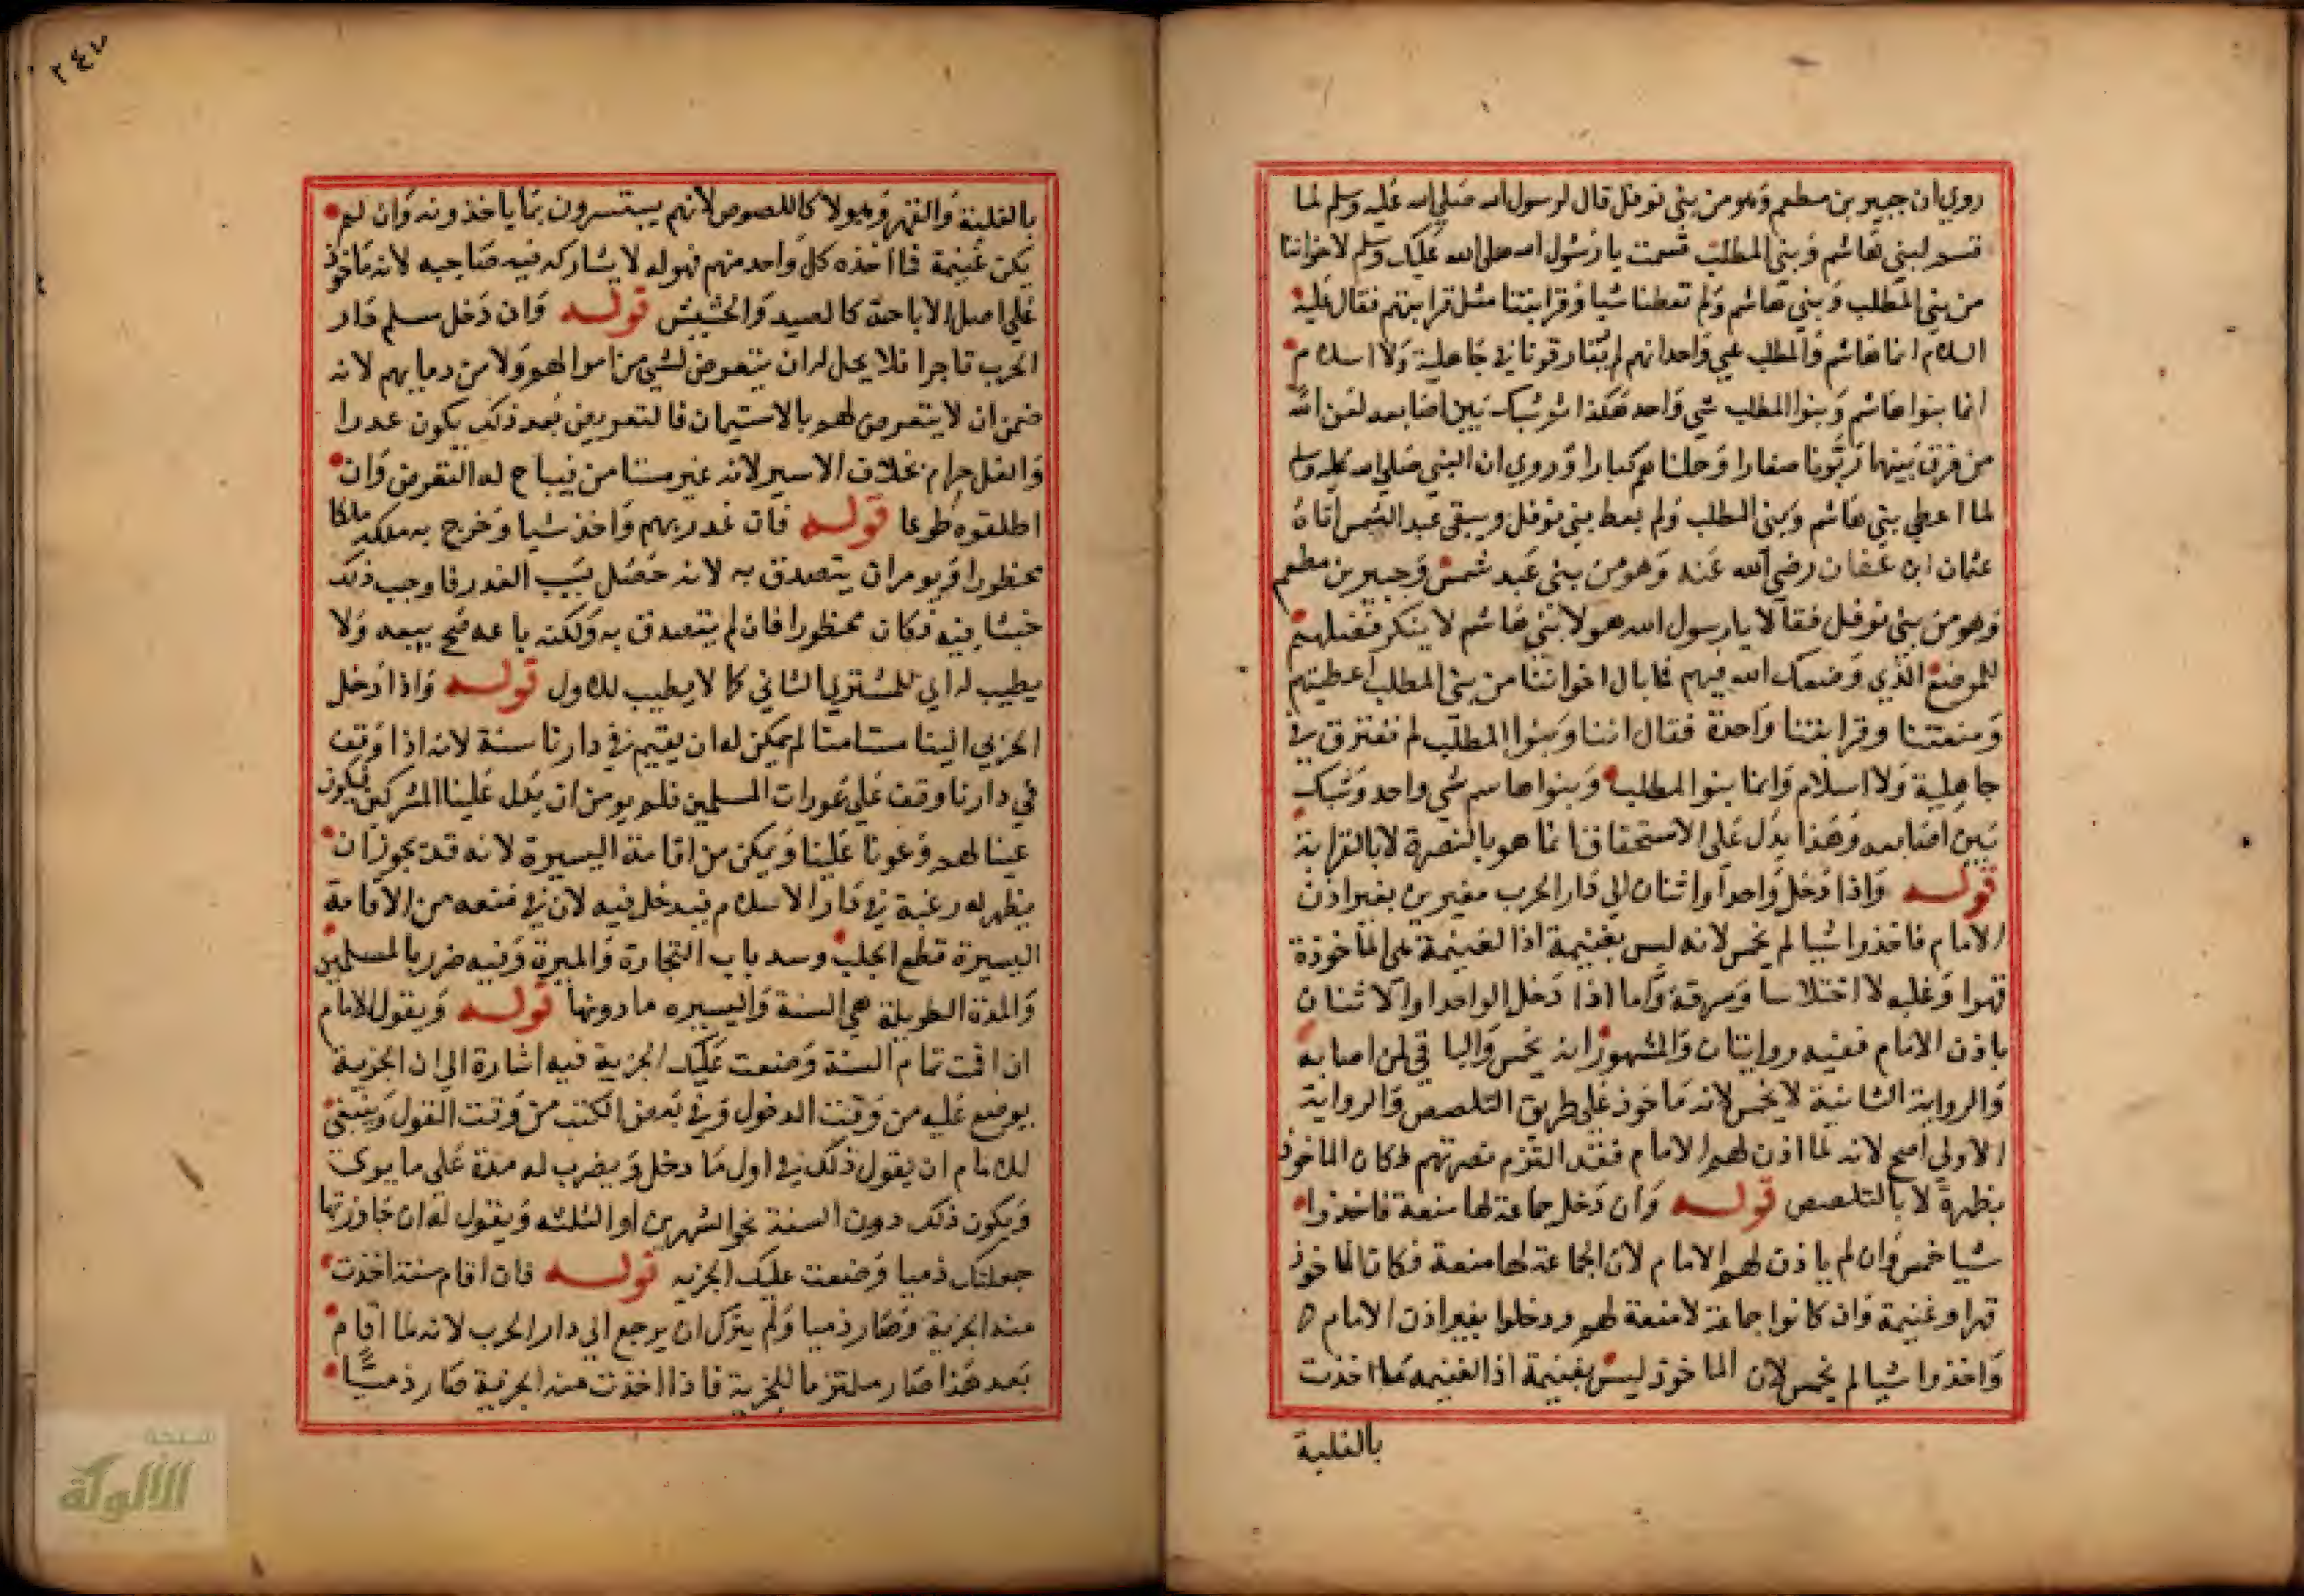 روي ان جبير بن مطعم وهو من بني نوفل قال لرسول الله صلي الله عليه وسلم لما
قسم لبني هاشم وبني المطلب قسمت يا رسول الله صلى الله عليك وسلم لاخواننا
من بني المطلب وبني هاشم ولم تعطنا شيا وقرابتنا مثل قرابتهم فقال عليه
السلام انما هاشم والمطلب شي واحد انهم لم يفارقونا في جاهلية ولا اسلام
انما بنوا هاشم وبنوا المطلب شي واحد هكذا ثم شبك بين اصابعه لعن الله
من فرق بينهما ربونا صغارا وحملناهم كبارا وروي ان النبي صلي الله عليه وسلم
لما اعطي بني هاشم وبني المطلب ولم يعط بني نوفل وبني عبد الشمس اتاه
عثمان ابن عفان رضي الله عنه وهو من بني عبد شمس وجبير بن مطعم
وهو من بني نوفل فقالا يا رسول الله هولا بني هاشم لا ينكر فضلهم
للموضع الذي وضعك الله فيهم فما بال اخواننا من بني المطلب اعطيتهم
ومنعتنا وقرابتنا واحدة فقال اننا وبنوا المطلب لم نفترق في
جاهلية ولا اسلام وانما بنوا المطلب وبنوا هاشم شي واحد وشبك
بين اصابعه وهذا يدل على الاستحقاق انما هو بالنصرة لا بالقرابة
قوله واذا دخل واحد او اثنان الي دار الحرب مغيرين بغير اذن
الامام فاخذوا شيا لم يخمس لانه ليس بغنيمة اذ الغنيمة هي الماخوذة
قهرا وغلبه لا اختلاسا وسرقة واما اذا دخل الواحد او الاثنان
باذن الامام ففيه روايتان والمشهور انه يخمس والباقي لمن اصابه
والرواية الثانية لا يخمس لانه ماخوذ علي طريق التلصص والرواية
الاولي اصح لانه لما اذن لهم الامام فقد التزم نصرتهم فكان الماخوذ
بظهره لا بالتلصص قوله وان دخل جماعة لها منعة فاخذوا
شيا خمس وان لم ياذن لهم الامام لان الجماعة لها منعة فكان الماخوذ
قهرا وغنيمة وان كانوا جماعة لا منعة لهم ودخلوا بغير اذن الامام
واخذوا شيا لم يخمس لان الماخوذ ليس بغنيمة اذ الغنيمه ما اخذت
بالغلبة
٢٤٧
بالغلبة والقهر وهولا كاللصوص لانهم يستسرون بما ياخذونه وان لم
يكن غنيمة فما اخذه كل واحد منهم فهو له لا يشاركه فيه صاحبه لانه ماخوذ
علي اصل الاباحة كالصيد والحشيش قوله وان دخل مسلم دار
الحرب تاجرا فلا يحل له ان يتعرض لشي من اموالهم ولا من دمايهم لانه
ضمن ان لا يتعرض لهم بالاستيمان فالتعريض بعد ذلك يكون غدرا
والغدر حرام بخلاف الاسير لانه غير مستامن فيباح له التعرض وان
اطلقوه طوعا قوله فان غدر بهم واخذ شيا وخرج به ملكه ملكا
محظورا ويومر ان يتصدق به لانه حصل بسبب الغدر فاوجب ذلك
خبثا فيه فكان محظورا فان لم يتصدق به ولكنه باعه صح بيعه ولا
يطيب له اي للمشتري الثاني كما لا يطيب للاول قوله واذا دخل
الحربي الينا مستامنا لم يمكن له ان يقيم في دارنا سنة لانه اذا وقف
في دارنا وقف علي عورات المسلمين فلم يومن ان يدل علينا المشركين فيكون
عينا لهم وعونا علينا ويمكن من اقامة اليسيرة لانه قد يجوز ان
يظهر له رغبة في دار الاسلام فيدخل فيه لان في منعه من الاقامة
اليسيرة قطع الجلب وسد باب التجارة والميرة وفيه ضرر بالمسلمين
والمدة الطويلة هي السنة واليسيره ما دونها قوله ويقول الامام
ان اقمت تمام السنة وضعت عليك الجزية فيه اشارة الي ان الجزية
يوضع عليه من وقت الدخول وفي بعض الكتب من وقت القول وينبغي
للامام ان يقول ذلك في اول ما دخل ويضرب له مدة على ما يري
ويكون ذلك دون السنة نحو الشهرين او الثلثه ويقول له ان جاوزتها
جعلتك ذميا وضعت عليك الجزيه قوله فان اقام سنة اخذت
منه الجزية وصار ذميا ولم يترك ان يرجع الي دار الحرب لانه لما اقام
بعد هذا صار ملتزما للجزية فاذا اخذت منه الجزية صار ذميا
شبكة
الألوكة